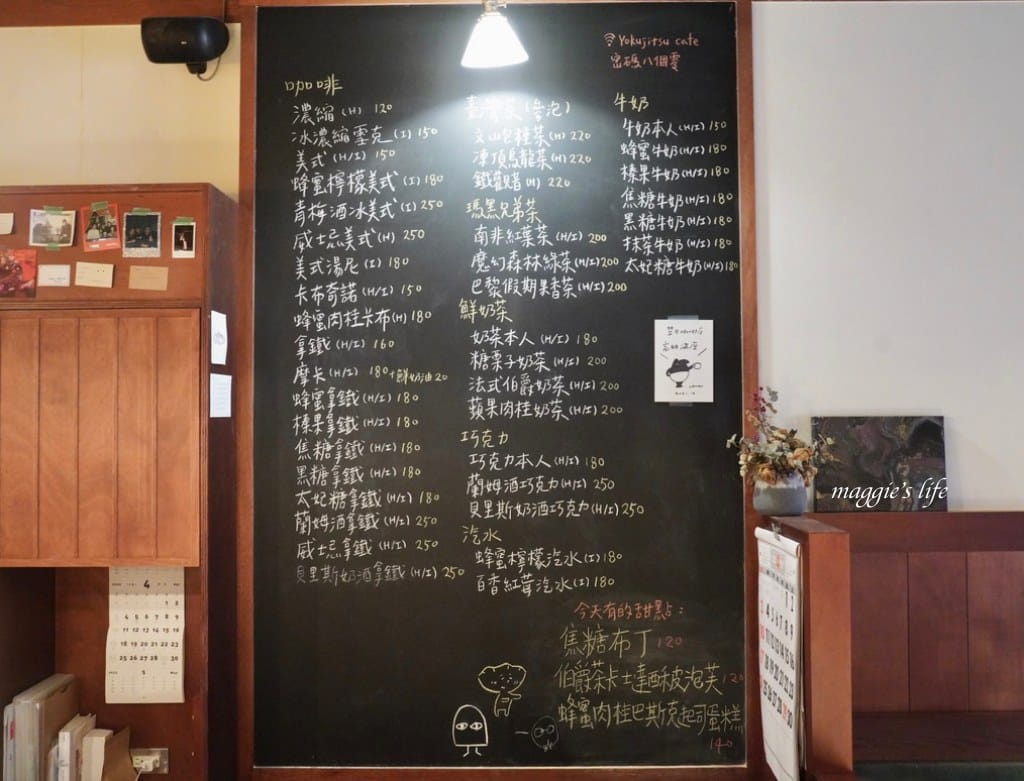 Yokujitsu cafe
密碼八個零
咖啡
濃縮 (H) 120
冰濃縮雪克 (I) 150
美式 (H/I) 150
蜂蜜檸檬美式 (I) 180
青梅酒冰美式 (I) 250
威士忌美式 (H) 250
美式湯尼 (I) 180
卡布奇諾 (H/I) 150
蜂蜜肉桂卡布 (H) 180
拿鐵 (H/I) 160
摩卡 (H/I) 180 +鮮奶油20
蜂蜜拿鐵 (H/I) 180
榛果拿鐵 (H/I) 180
焦糖拿鐵 (H/I) 180
黑糖拿鐵 (H/I) 180
太妃糖拿鐵 (H/I) 180
蘭姆酒拿鐵 (H/I) 250
威士忌拿鐵 (H/I) 250
貝里斯奶酒拿鐵 (H/I) 250
臺灣茶 (壺泡)
文山包種茶 (H) 220
凍頂烏龍茶 (H) 220
鐵觀音 (H) 220
瑪黑兄弟茶
南非紅葉茶 (H/I) 200
魔幻森林綠茶 (H/I) 200
巴黎假期果香茶 (H/I) 200
鮮奶茶
奶茶本人 (H/I) 180
糖栗子奶茶 (H/I) 200
法式伯爵奶茶 (H/I) 200
蘋果肉桂奶茶 (H/I) 200
巧克力
巧克力本人 (H/I) 180
蘭姆酒巧克力 (H/I) 250
貝里斯奶酒巧克力 (H/I) 250
汽水
蜂蜜檸檬汽水 (I) 180
百香紅莓汽水 (I) 180
牛奶
牛奶本人 (H/I) 150
蜂蜜牛奶 (H/I) 180
榛果牛奶 (H/I) 180
焦糖牛奶 (H/I) 180
黑糖牛奶 (H/I) 180
抹茶牛奶 (H/I) 180
太妃糖牛奶 (H/I) 180
今天有的甜點：
焦糖布丁 120
伯爵茶卡士達酥皮泡芙 120
蜂蜜肉桂巴斯克起司蛋糕
140
maggie's life
4
1 2
4 5 6 7 8 9
11 12 13 14 15 16
18 19 20 21 22 23
25 26 27 28 29 30
5